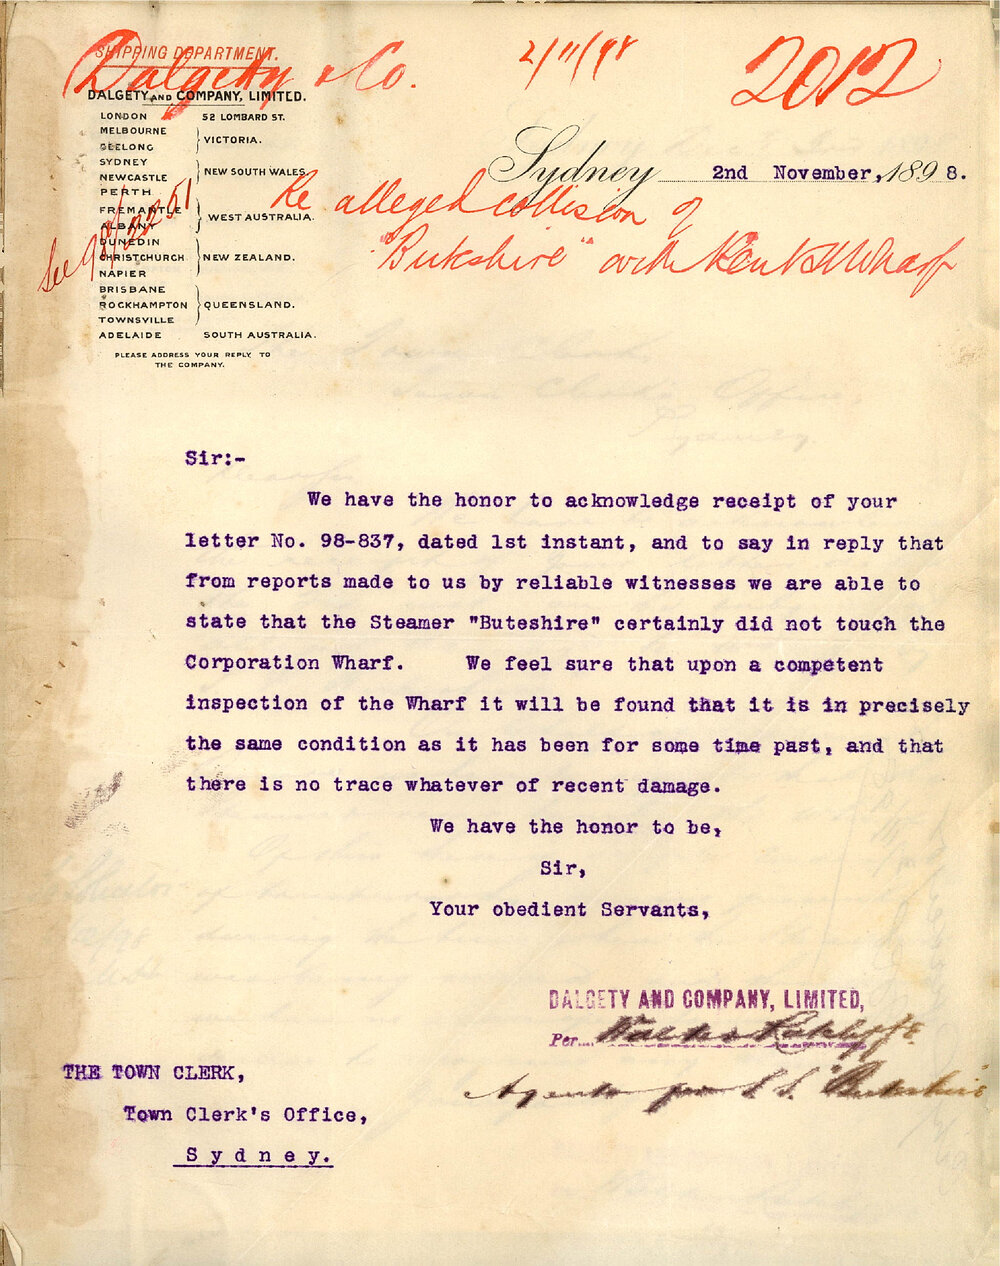 SHIPPING DEPARTMENT.
Dalgety & Co.
2/11/98
2012
DALGETY AND COMPANY, LIMITED.
LONDON 52 LOMBARD ST.
MELBOURNE
GEELONG
VICTORIA.
SYDNEY
NEWCASTLE
NEW SOUTH WALES.
PERTH
FREMANTLE
ALBANY
WEST AUSTRALIA.
DUNEDIN
CHRISTCHURCH
NAPIER
NEW ZEALAND.
BRISBANE
ROCKHAMPTON
TOWNSVILLE
QUEENSLAND.
ADELAIDE SOUTH AUSTRALIA.
PLEASE ADDRESS YOUR REPLY TO
THE COMPANY.
See 98/2251
Sydney 2nd November, 1898.
Re alleged collision of
"Buteshire" with Kent St Wharf
Sir:-
We have the honor to acknowledge receipt of your
letter No. 98-837, dated 1st instant, and to say in reply that
from reports made to us by reliable witnesses we are able to
state that the Steamer "Buteshire" certainly did not touch the
Corporation Wharf. We feel sure that upon a competent
inspection of the Wharf it will be found that it is in precisely
the same condition as it has been for some time past, and that
there is no trace whatever of recent damage.
We have the honor to be,
Sir,
Your obedient Servants,
DALGETY AND COMPANY, LIMITED,
Per Walter
Agents for S.S. "Buteshire"
THE TOWN CLERK,
Town Clerk's Office,
Sydney.